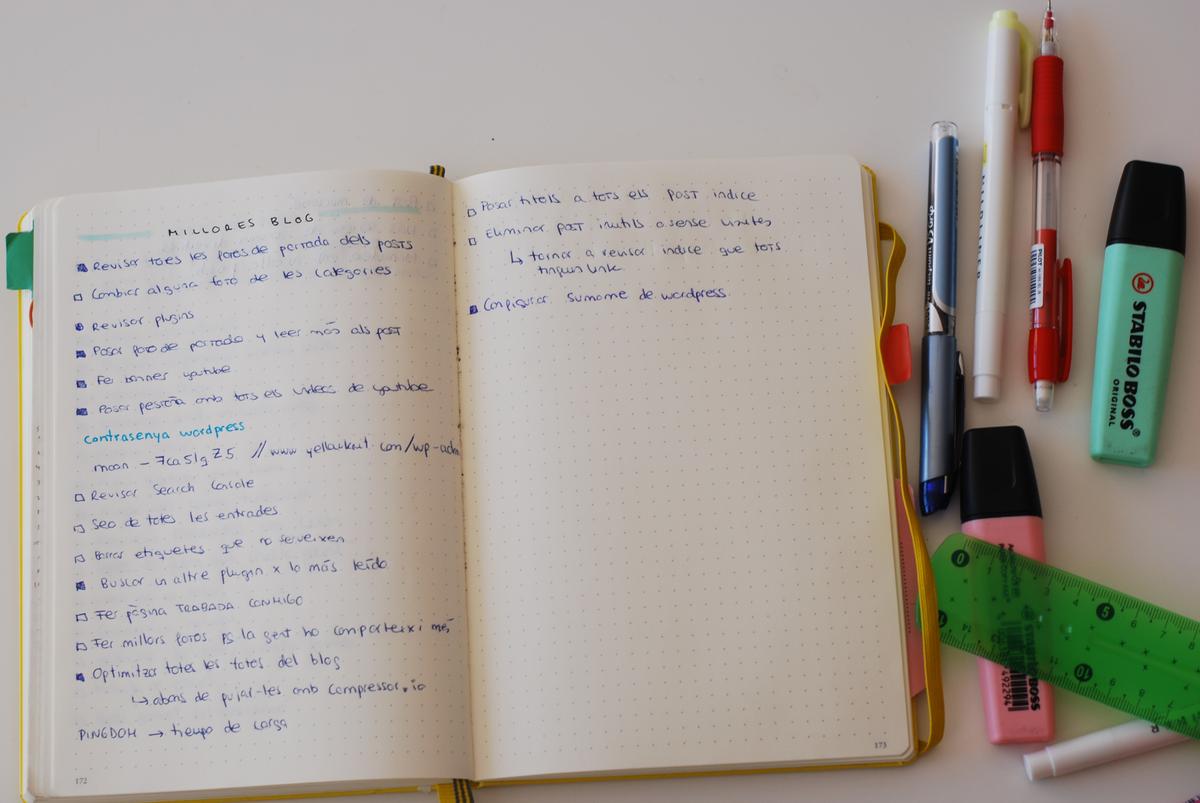 MILLORES BLOG
Revisar totes les fotos de portada dels posts
Cambiar alguna foto de les categories
Revisar plugins
Posar foto de portada y leer más als post
Fer banner youtube
Posar pestaña amb tots els videos de youtube
contrasenya wordpress
moon – // www
Revisar Search Console
Seo de totes les entrades
Borrar etiquetes que no serveixen
Buscar un altre plugin x lo más leído
Fer pàgina TRABADA CONMIGO
Fer millors fotos ps la gent ho comparteixi més
Optimitzar totes les fotos del blog
↳ abans de pujar-les amb compressor.io
PINGDOM → tiempo de carga
172
Posar titols a tots els post indice
Eliminar post inutils o sense visites
↳ tornar a revisar indice que tots
tinguin link
Configurar sumome de wordpress
173
PILOT
STABILO BOSS®
ORIGINAL
BOSS
0
5
10